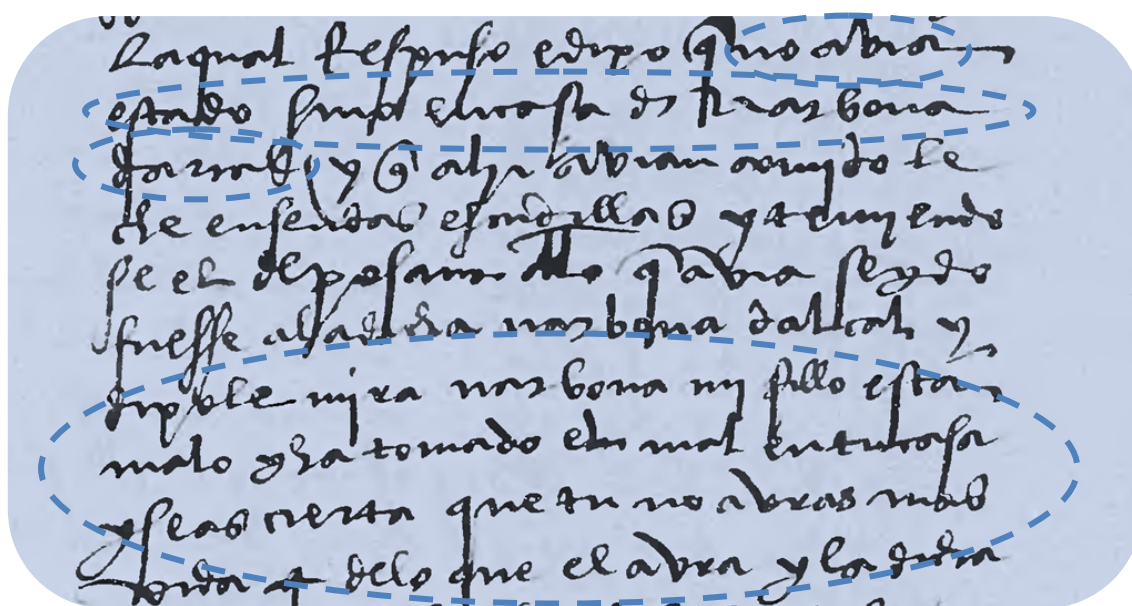 La qual Respuso e dixo q no avia
estado sino en casa d Narbona
darcal y q alli avian comido le
che en sendas escudillas y temiendo
se el deposant dello q avia seydo
fuesse a la dicha narbona dalcal y
dixole mira narbona mi fillo esta
malo y ha tomado el mal en tu casa
y seas cierta que tu no avras mas
vida q delo que el avra y la dicha